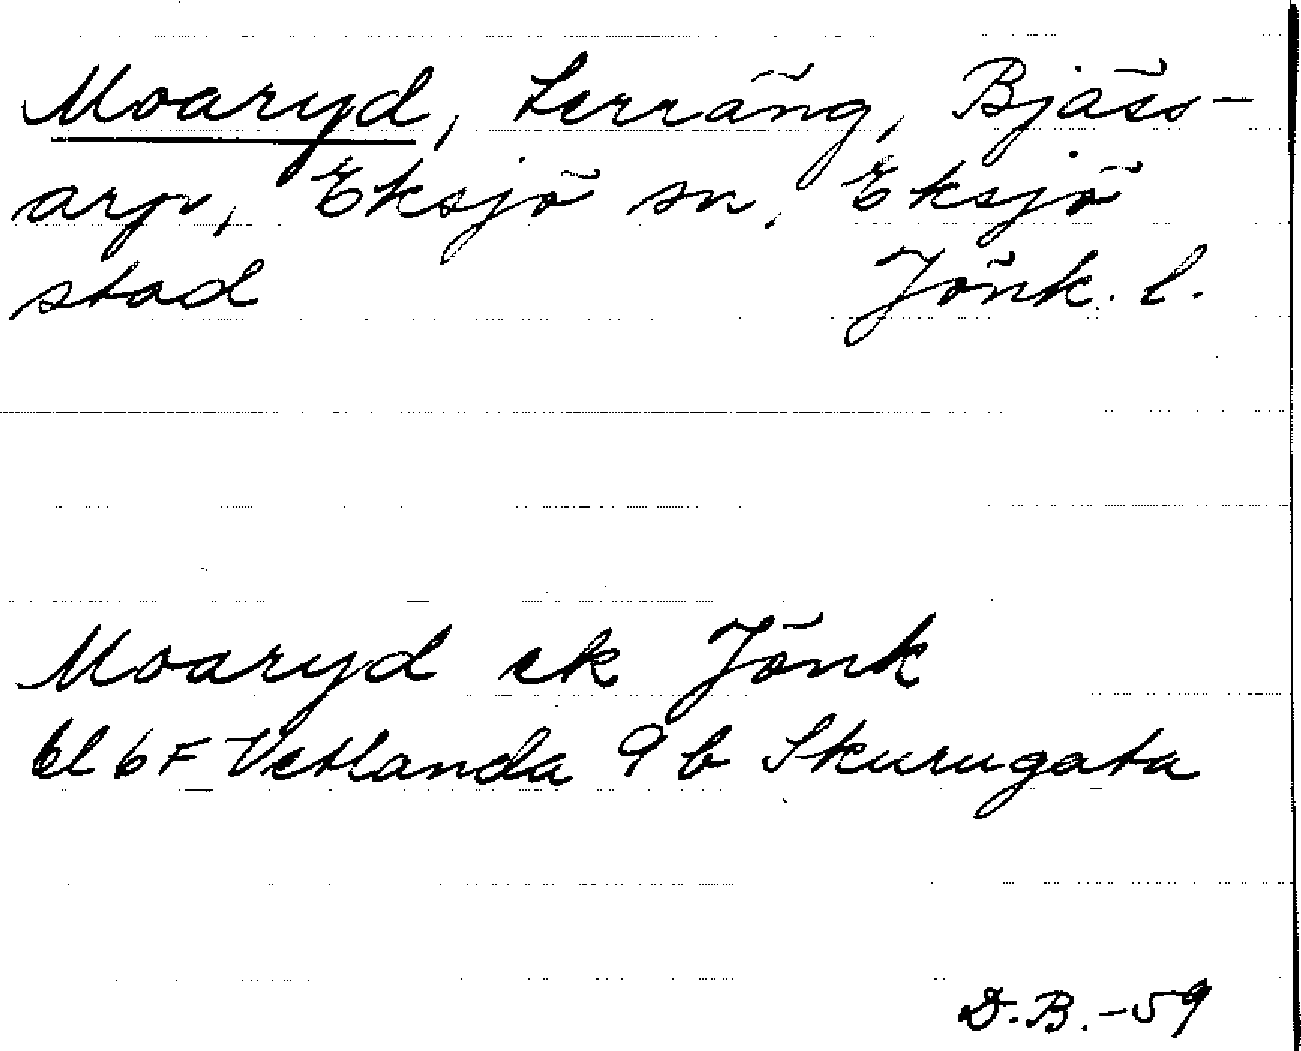 Moaryd, terräng, Bjäss-
arp, Eksjö sn, Eksjö
stad Jönk. l.
Moaryd ek Jönk
bl 6F Vetlanda 9 b Skurugata
D.B.-59